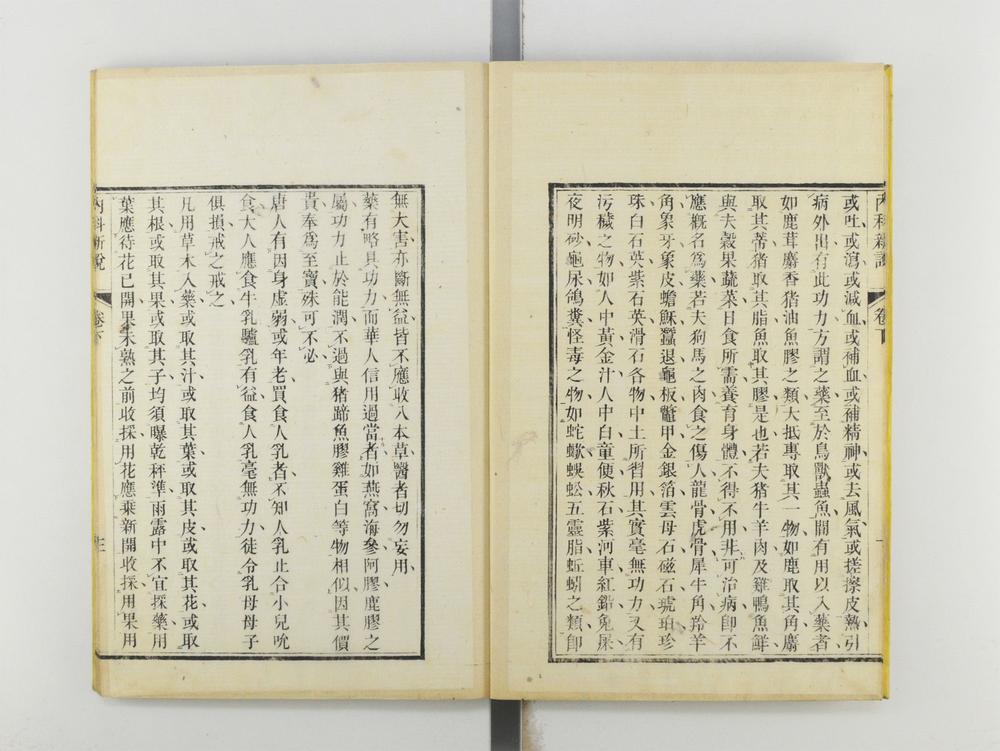 內科新說
卷下
或吐或瀉或減血或補血或補精神或去風氣或搓擦皮熱引
病外出有此功力方謂之藥至於鳥獸蟲魚間有用以入藥者
如鹿茸麝香猪油魚膠之類大抵專取其一物如鹿取其角麝
取其蒂猪取其脂魚取其膠是也若夫猪牛羊肉及雞鴨魚鮮
與夫穀果蔬菜日食所需養育身體不得不用非可治病卽不
應概名爲藥若夫狗馬之肉食之傷人龍骨虎骨犀牛角羚羊
角象牙象皮蟾酥蠶退龜板鼈甲金銀箔雲母石磁石琥珀珍
珠白石英紫石英滑石各物中土所習用其實毫無功力又有
污穢之物如人中黃金汁人中白童便秋石紫河車紅鉛兔屎
夜明砂龜尿鴿糞怪毒之物如蛇蠍蜈蚣五靈脂蚯蚓之類卽
無大害亦斷無益皆不應收入本草醫者切勿妄用
藥有略具功力而華人信用過當者如燕窩海參阿膠鹿膠之
屬功力止於能潤不過與猪蹄魚膠雞蛋白等物相似因其價
貴奉爲至寶殊可不必
唐人有因身虛弱或年老買食人乳者不知人乳止合小兒吮
食大人應食牛乳驢乳有益食人乳毫無功力徒令乳母母子
俱損戒之戒之
凡用草木入藥或取其汁或取其葉或取其皮或取其花或取
其根或取其果或取其子均須曝乾秤準雨露中不宜採藥用
葉應待花已開果未熟之前收採用花應乘新開收採用果用
內科新說
卷下